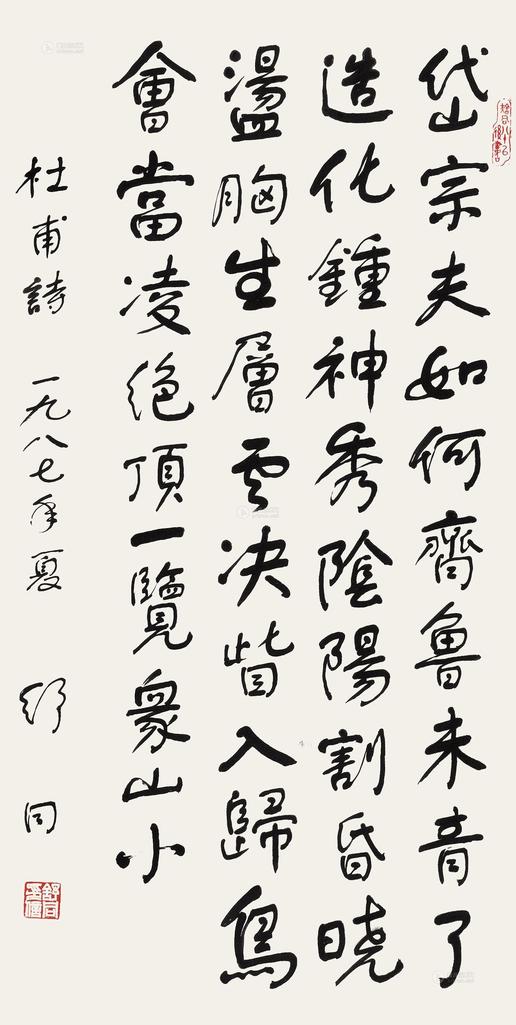 岱宗夫如何齊魯未青了
造化鍾神秀陰陽割昏晓
盪胸生層云决眥入歸鳥
會當凌絶頂一覽衆山小
杜甫詩 一九八七年夏 舒同